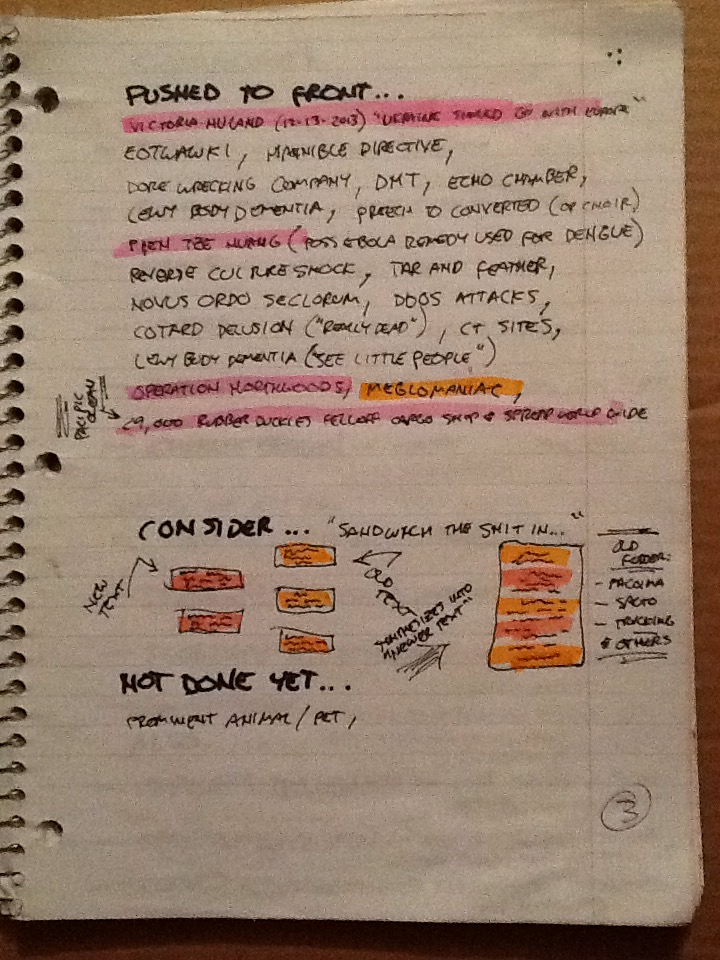 PUSHED TO FRONT...
VICTORIA NULAND (12-13-2013) "UKRAINE SHOULD GO WITH EUROPE"
EOTWAWKI, MAENIBLE DIRECTIVE,
DORE WRECKING COMPANY, DMT, ECHO CHAMBER,
LEWY BODY DEMENTIA, PREECH TO CONVERTED (OR CHOIR)
PIEN TZE HUANG (POSS EBOLA REMEDY USED FOR DENGUE)
REVERSE CULTURE SHOCK, TAR AND FEATHER,
NOVUS ORDO SECLORUM, DDOS ATTACKS,
COTARD DELUSION ("REALLY DEAD"), CT SITES,
LEWY BODY DEMENTIA ("SEE LITTLE PEOPLE")
OPERATION NORTHWOODS, MEGLOMANIAC,
PACIFIC OCEAN
29,000 RUBBER DUCKIES FELL OFF CARGO SHIP & SPREAD WORLD WIDE
CONSIDER... "SANDWICH THE SHIT IN..."
NEW TEXT
OLD TEXT
SYNTHESIZED INTO "NEWER TEXT"
OLD FODDER:
- PACOIMA
- SACTO
- TRUCKING
& OTHERS
NOT DONE YET...
PROMINENT ANIMAL/PET,
3